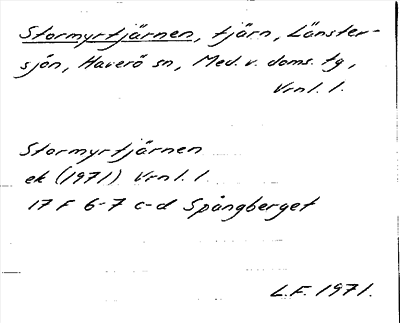 Stormyrtjärnen, tjärn, Länster-
sjön, Haverö sn, Med. v. doms. tg,
Vrnl. 1.
Stormyrtjärnen
ek (1971) Vrnl. 1.
17 F 6-7 c-d Spångberget
L.F. 1971.